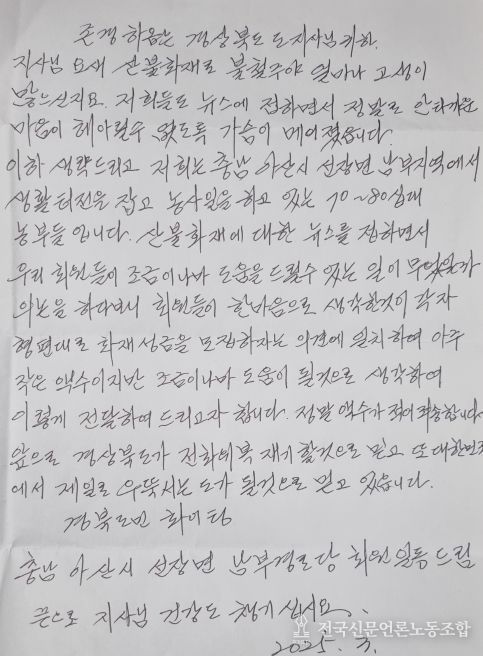 존경하옵는 경상북도 도지사님귀하.
지사님 요새 산불화재로 불철주야 얼마나 고생이
많으신지요. 저희들도 뉴스에 접하면서 정말로 안타까운
마음이 헤아릴수 없도록 가슴이 메어졌습니다.
이하 생략드리고 저희는 충남 아산시 선장면 남부지역에서
생활터전을 잡고 농사일을 하고 있는 70~80십대
농부들 입니다. 산불화재에 대한 뉴스를 접하면서
우리 회원들이 조금이나마 도움을 드릴수 있는 일이 무엇일가
의논을 하다보니 회원들이 한마음으로 생각한것이 각자
형편대로 화재성금을 모집하자는 의견에 일치하여 아주
작은 액수이지만 조금이나마 도움이 될것으로 생각하여
이렇게 전달하여 드리고자 합니다. 정말 액수가 적어 죄송합니다.
앞으로 경상북도가 전화위복 재기할것으로 믿고 또 대한민국
에서 제일로 우뚝서는 도가 될것으로 믿고 있습니다.
경북도민 화이팅
충남 아산시 선장면 남부경로당 회원일동 드림
끝으로 지사님 건강도 챙기십시요.
2025. 3.
전국신문언론노동조합